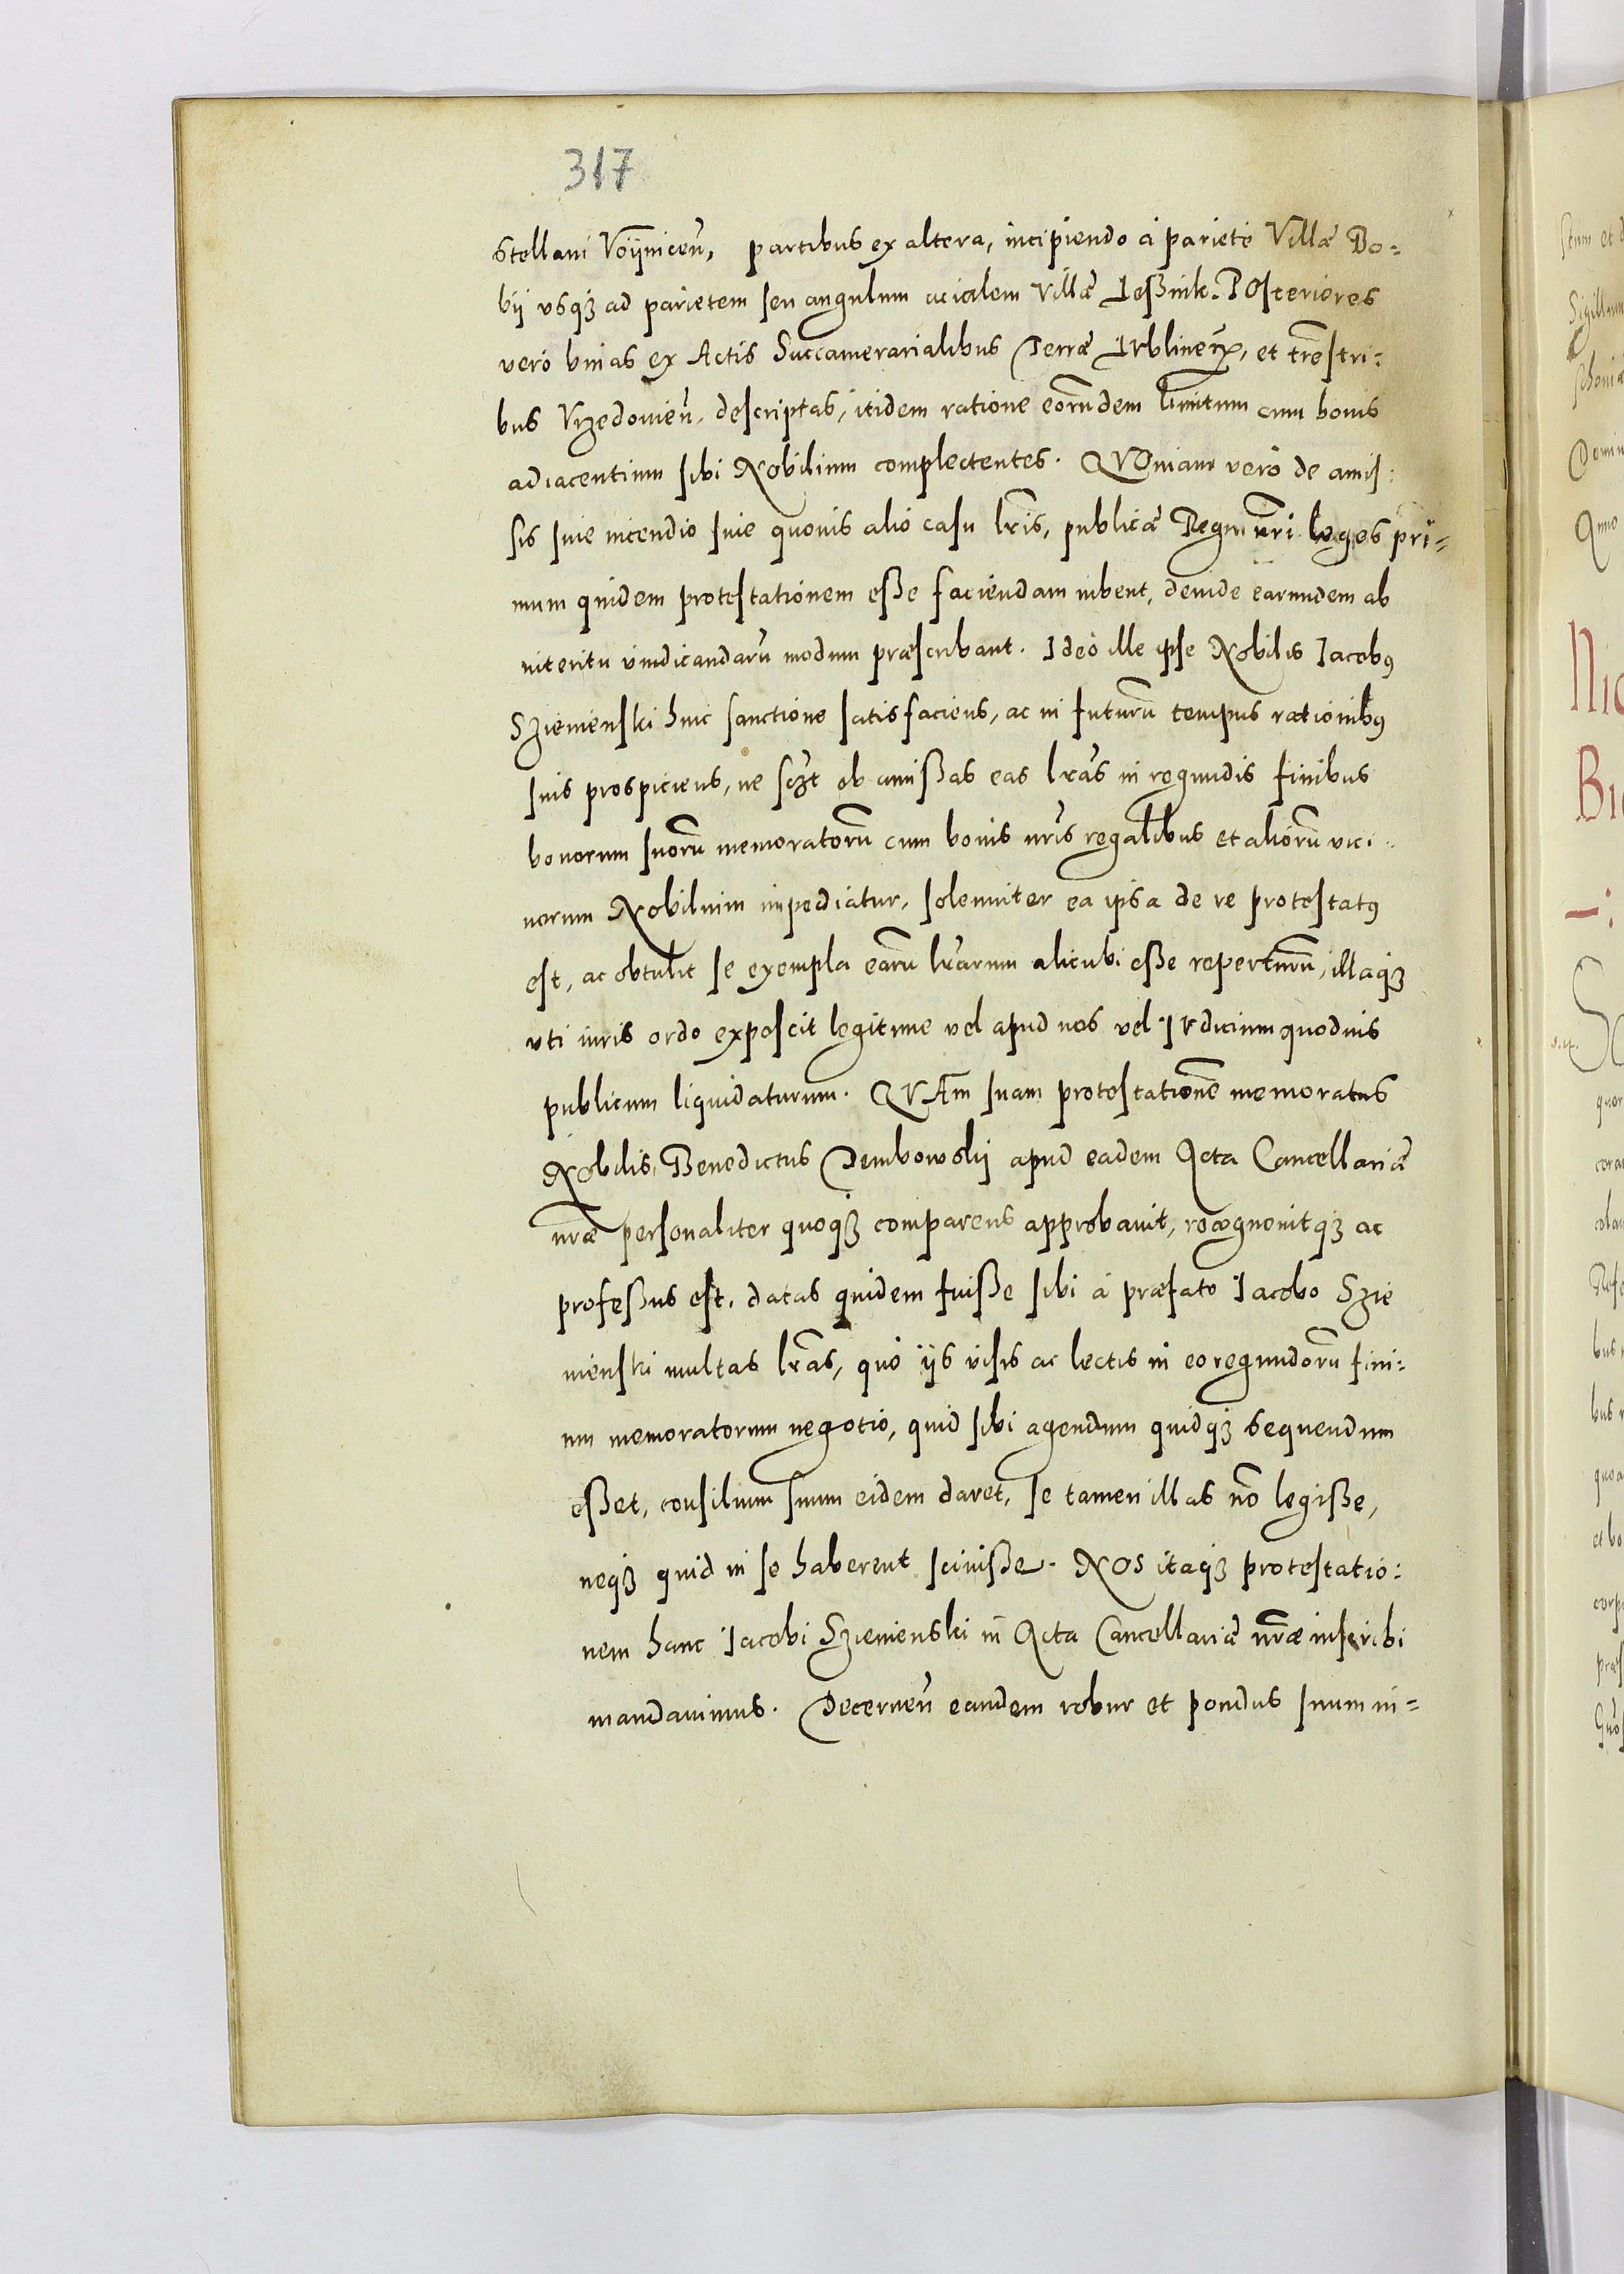 317
stellani Voijniceñ, partibus ex altera, incipiendo à pariete Villæ Bo-
bij vsq3 ad parietem seu angulum acialem Villæ Leßnik. POsteriores
verò binas ex Actis Succamerarialibus Terræ LVblineñ, et trẽstri-
bus Vrzedovieñ. descriptas, itidem ratione eorũdem limitum cum bonis
adiacentium sibi Nobilium complectentes. QVOniam verò de amis-
sis siue incendio siue quouis alio casu lr̃is, publicæ Regni nr̃i leges pri-
mum quidem protestationem eße faciendam iubent, deinde earundem ab
interitu vindicandarũ modum præscribant. Ideò ille ipse Nobilis Iacobus
Szienienski huic sanctione satisfaciens, ac in futurũ tempus rationibus
suis prospiciens, ne sczt ob amißas eas lr̃as in regundis finibus
bonorum suorũ memoratorũ cum bonis nr̃is regalibus et aliorũ vici-
norum Nobilium impediatur, solenniter ea ipsa de re protestatus
est, ac obtulit se exempla earũ lr̃arum alicubi eße reperturũ, illaq3
vti iuris ordo exposcit legitime vel apud nos vel IVdicium quoduis
publicum liquidaturum. QVAm suam protestationẽ memoratus
Nobilis, Benedictus Dembowskij apud eadem Acta Cancellariæ
nr̃æ personaliter quoq3 comparens approbauit, recognouitq3 ac
profeßus est, datas quidem fuiße sibi à præfato Iacobo Szie
nienski multas lr̃as, quò ijs visis ac lectis in eo regundorũ fini-
um memoratorum negotio, quid sibi agendum quidq3 sequendum
eßet, consilium suum eidem daret, se tamen illas nõ legiße,
neq3 quid in se haberent sciuiße. NOs itaq3 protestatio-
nem hanc Iacobi Szienienski in Acta Cancellariæ nr̃æ inscribi
mandauimus. Decerneñ eandem robur et pondus suum in-